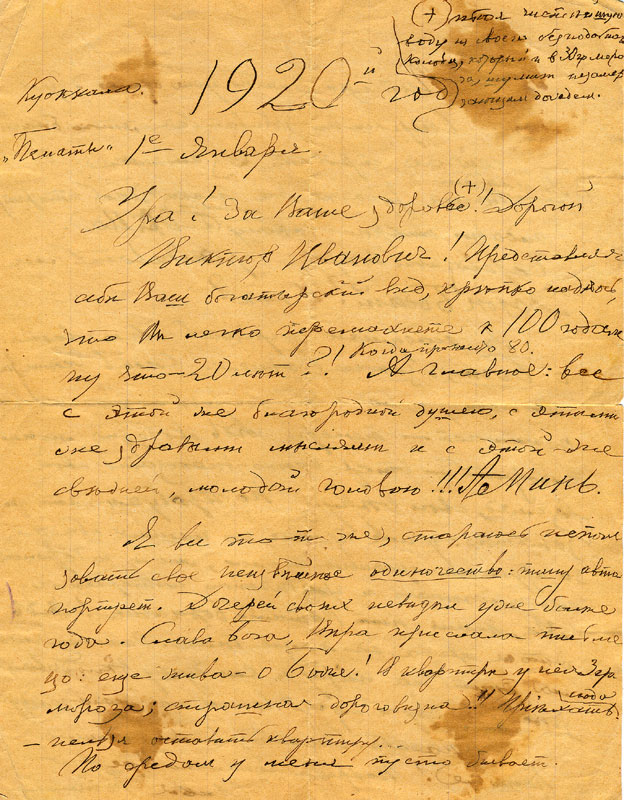 (+) пья чистейшую
воду из своего
колодца, который и в 30 гр моро
за, шумит незамер
зающим дождем.
Куоккала. 1920й год
"Пенаты" 1е января.
Ура! За Ваше здоровье (+)! Дорогой
Виктор Иванович! Представляя
себе Ваш богатырский вид, крепко надеюсь,
что Вы легко перемахнете к 100 годам
ну что - 20 лет?! Когда прожито 80.
А главное: все
с этой же благородной душою, с этими
же здравыми мыслями и с этой же
свежей, молодой головою!!! Аминь.
Я все тот же, стараюсь исполь
зовать свое одиночество: пишу авто
портрет. Дочерей своих не видел уже более
года. Слава Богу, Вера прислала письме
цо: еще жива - о Боже! В квартире у неё 3 гр
мороза; страшная дороговизна!! Приехать сюда
- нельзя оставить квартиру...
По средам у меня пусто бывает.